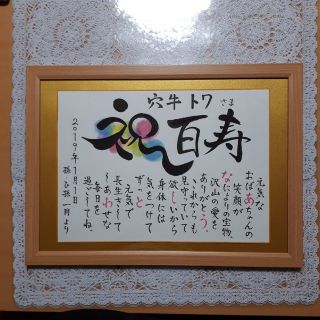 穴牛 トワ さま
祝百寿
元気な
おばあちゃんの
笑顔が
なによりの宝物
沢山の愛を
ありがとう
これからも
見守っていて
欲しいから
身体には
気をつけて
ずっと
元気で
長生きして
しあわせな
毎日を
過ごしてね。
2019年1月1日
孫 ひ孫 一同より